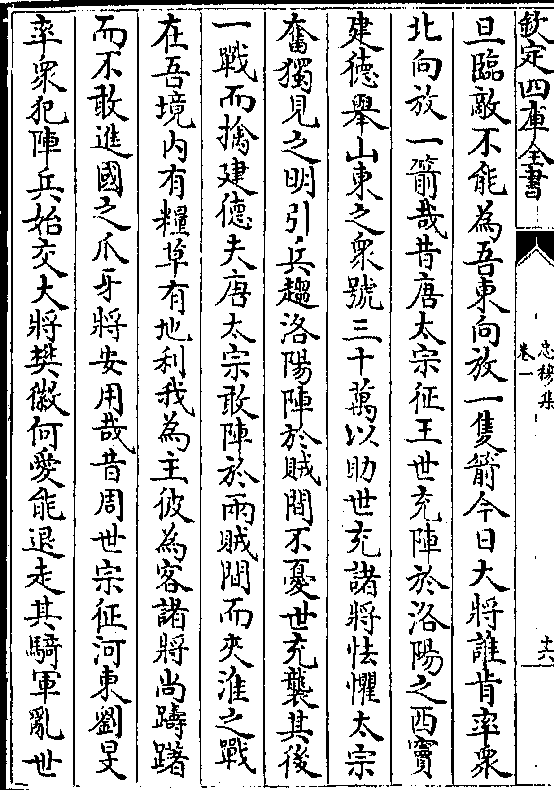 欽定四庫全書
忠穆集
卷一
十六
旦臨敵不能為吾東向放一隻箭今日大將誰肯率衆
北向放一箭哉昔唐太宗征王世充陣於洛陽之西竇
建德舉山東之衆號三十萬以助世充諸將怯懼太宗
奮獨見之明引兵趨洛陽陣於賊間不憂世充襲其後
一戰而擒建德夫唐太宗敢陣於兩賊間而夾淮之戰
在吾境内有糧草有地利我為主彼為客諸將尚躊躇
而不敢進國之爪牙將安用哉昔周世宗征河東劉旻
率衆犯陣兵始交大將樊徽何愛能退走其騎軍亂世